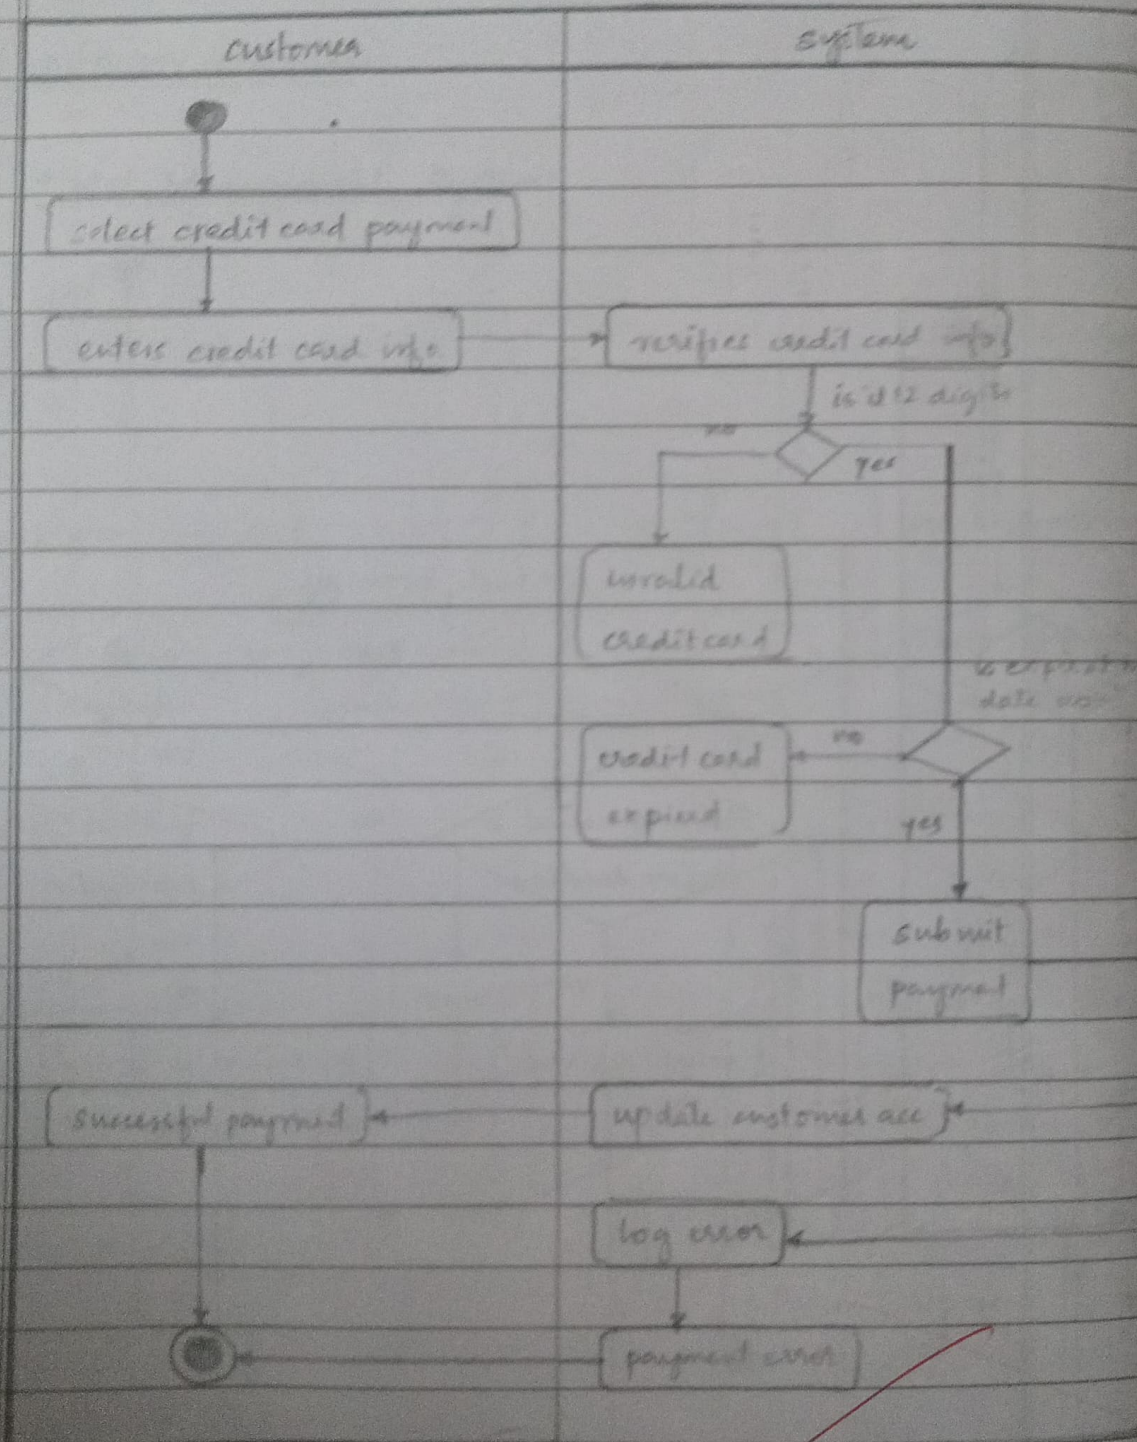 customer
system
select credit card payment
enters credit card info
verifies credit card info
is it 12 digits
no
yes
invalid
credit card
date
credit card
expired
no
yes
submit
payment
successful payment
update customer acc
log error
payment error